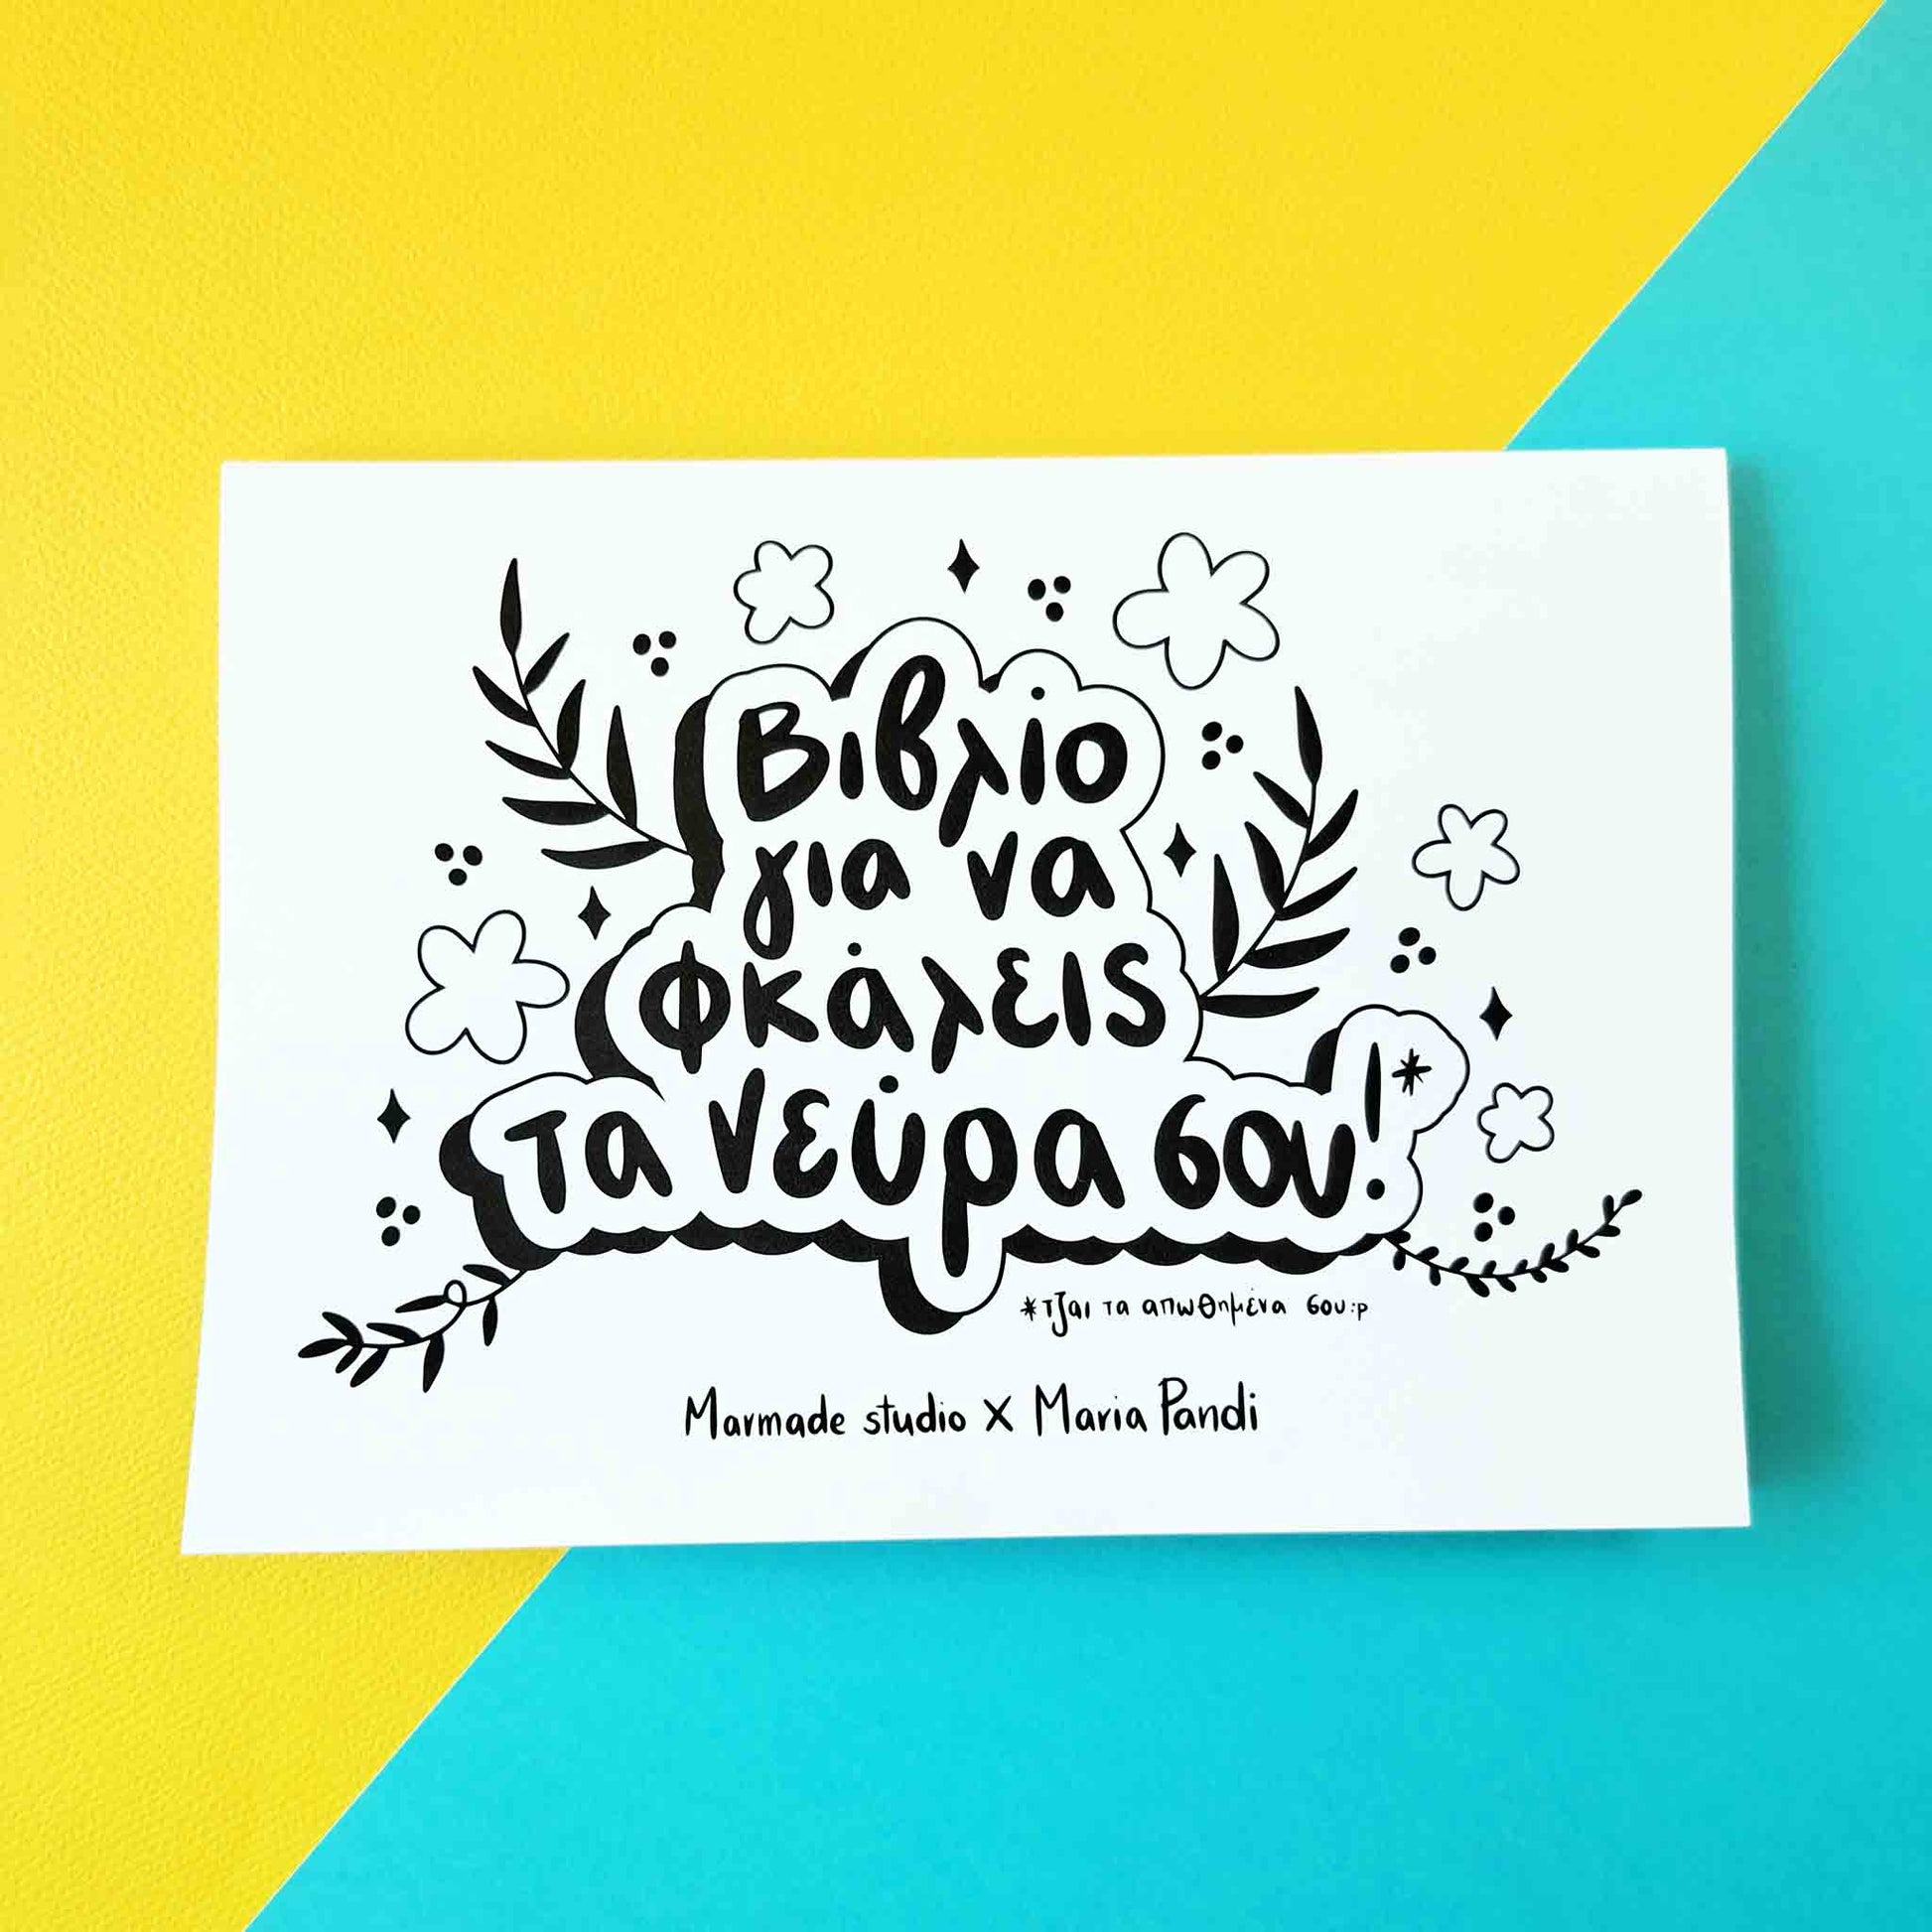 Βιβλίο
για να
φκάλεις
τα νεύρα σου!*
*τζαι τα απωθημένα σου:p
Marmade studio X Maria Pandi